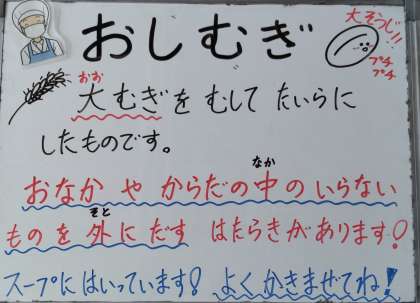 おしむぎ
大そうじ!!
プチ
プチ
大むぎを むして たいらに
おお
したものです。
おなか や からだの中の いらない
なか
ものを 外に だす はたらきがあります!
そと
スープに はいっています! よく かきまぜてね!